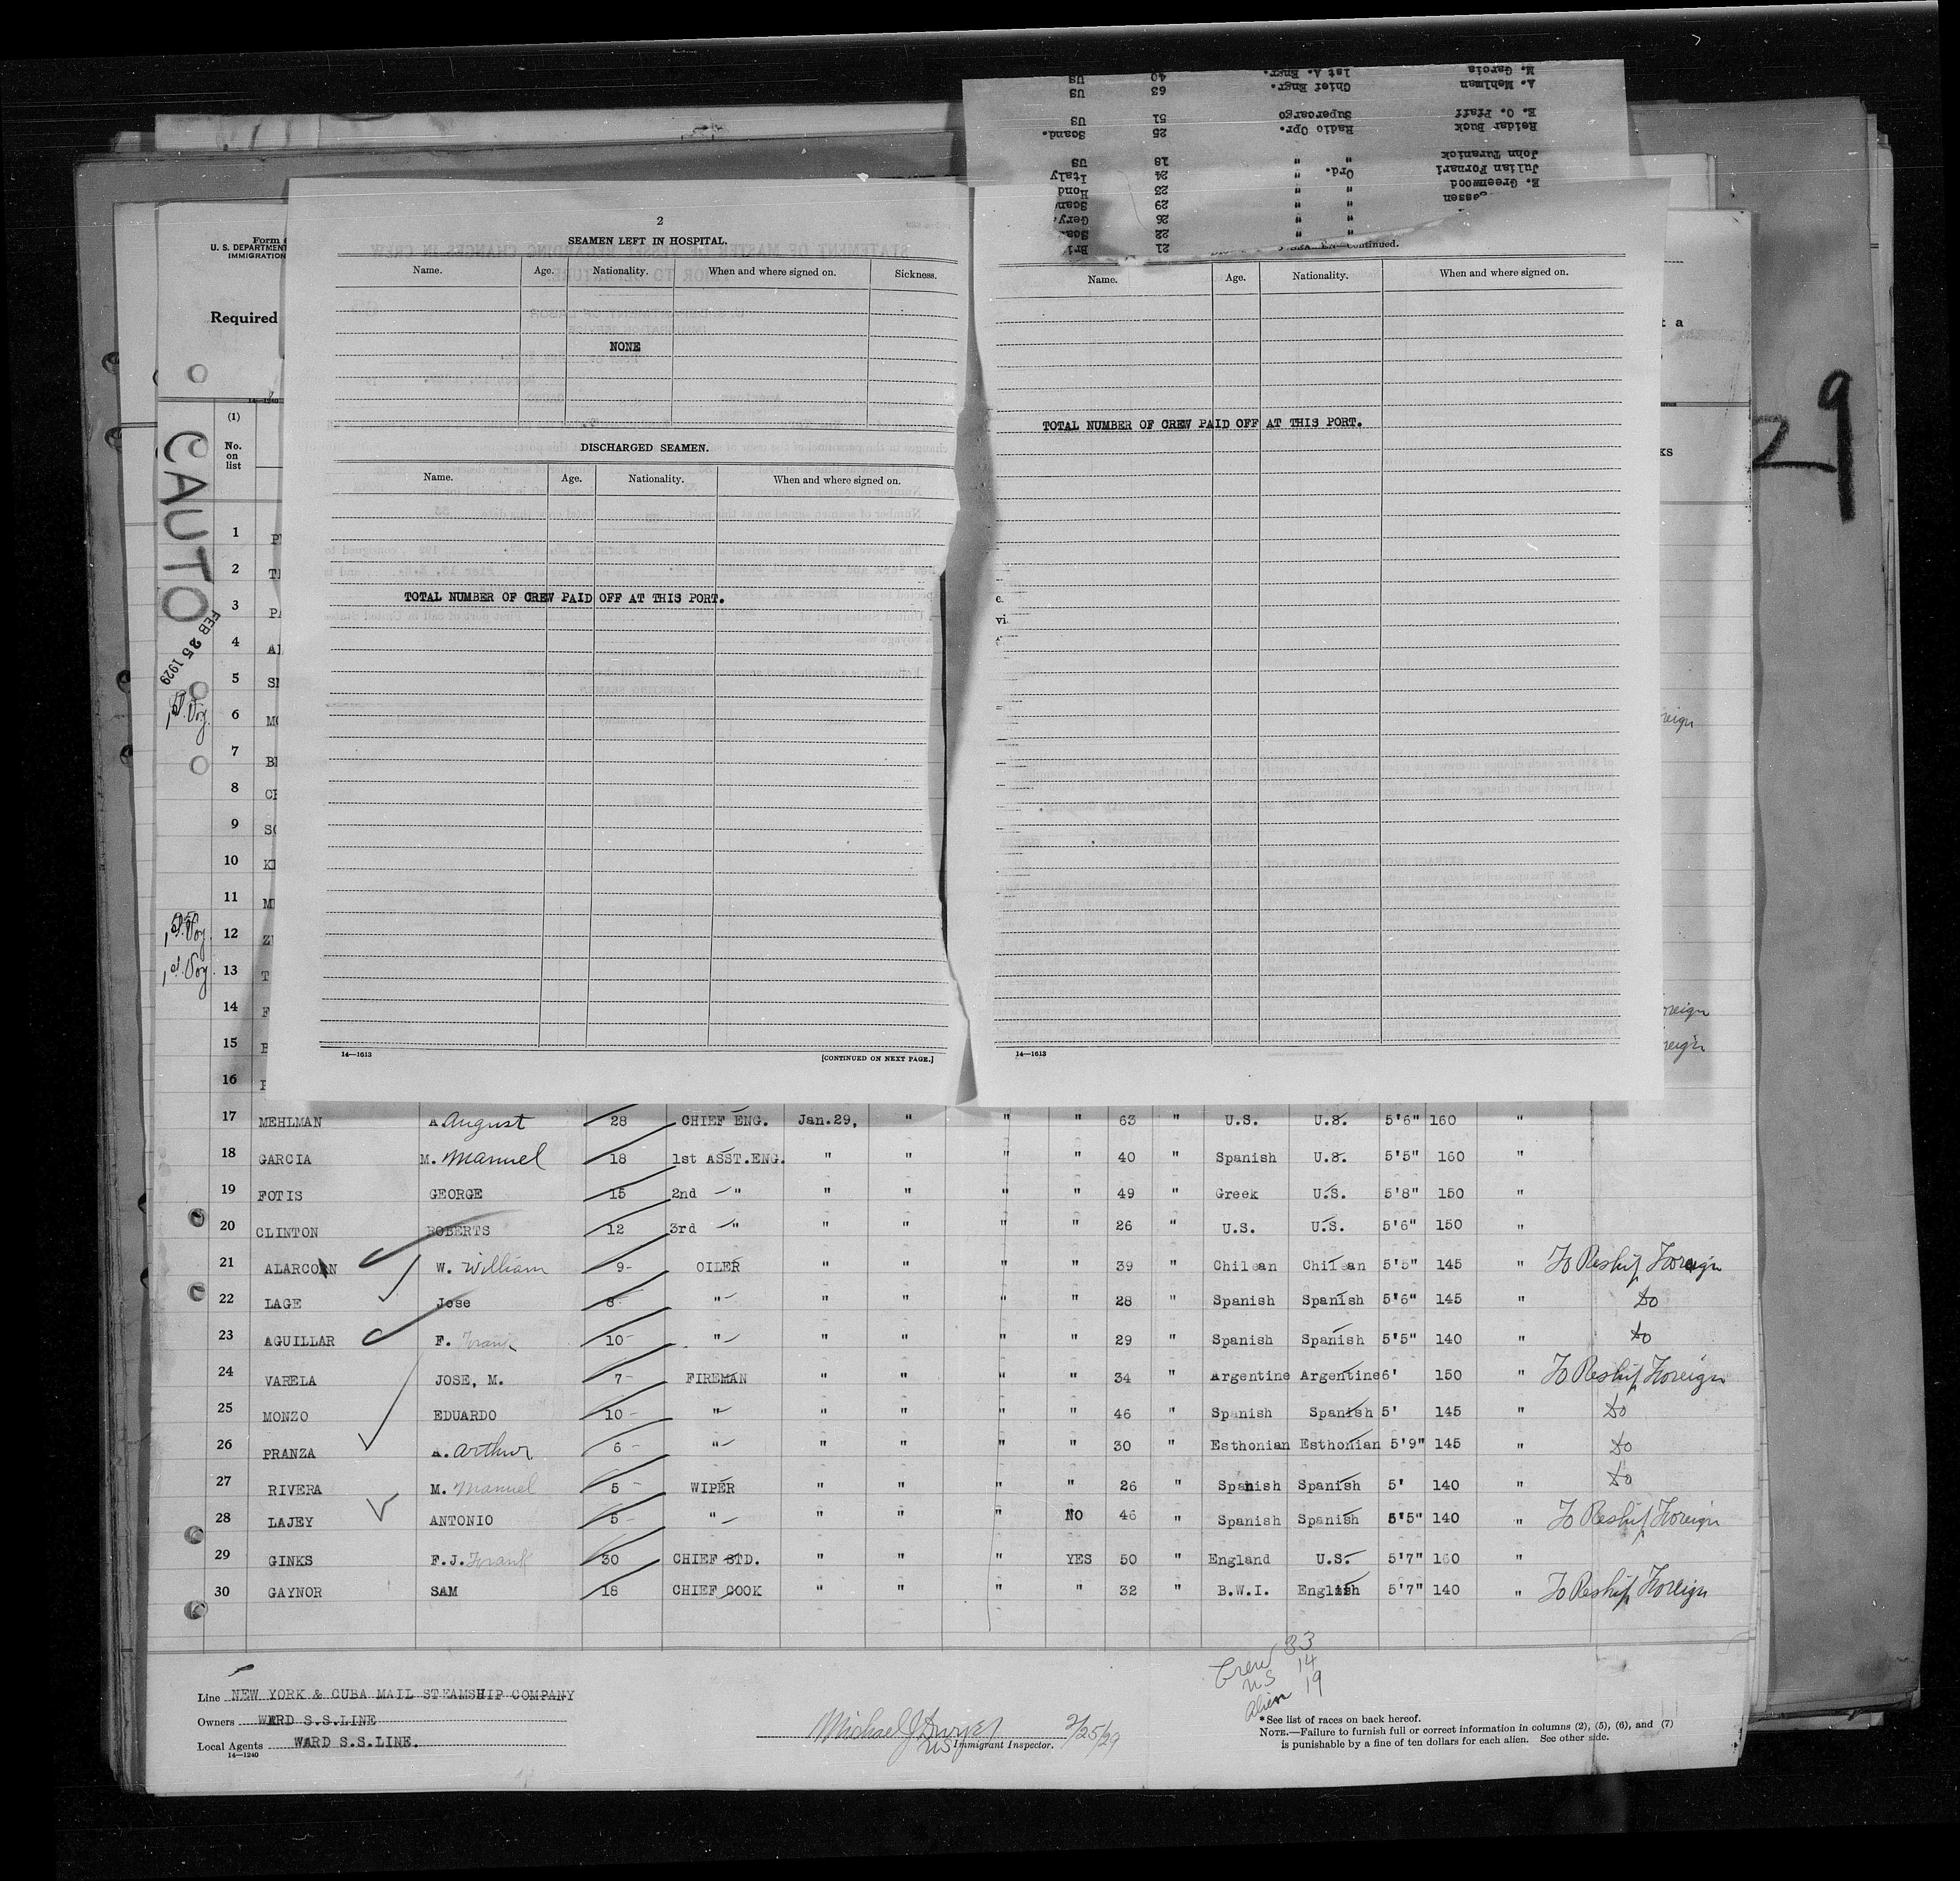 A. Mehlman Chief Engr. 63 US
M. Garcia 1st A. Engr. 40 US
E. O. Pfaff Supercargo 51 US
Reidar Buck Radio Opr. 25 Scand.
John Turanick " " 18 US
Julian Fornari Ord. " 24 Italy
E. Greenwood " " 23 Hond
" " 29 Scan
" " 26 Gery.
" " 22
" " 21 Bri
Form
U. S. DEPARTMENT
IMMIGRATION
Required
14—1240
(1)
No.
on
list
CAUTO
FEB 25 1929
29
2
SEAMEN LEFT IN HOSPITAL.
Name. Age. Nationality. When and where signed on. Sickness.
NONE
DISCHARGED SEAMEN.
Name. Age. Nationality. When and where signed on.
TOTAL NUMBER OF CREW PAID OFF AT THIS PORT.
14—1613 [CONTINUED ON NEXT PAGE.]
Continued.
Name. Age. Nationality. When and where signed on.
TOTAL NUMBER OF CREW PAID OFF AT THIS PORT.
14—1613
1
2
3
4
5
1st Voy. 6
7
8
9
10
11
1st Voy. 12
1st Voy. 13
14
15
16
17 MEHLMAN A. August 28 CHIEF ENG. Jan.29, " " " 63 " U.S. U.S. 5'6" 160 "
18 GARCIA M. Manuel 18 1st ASST.ENG. " " " " 40 " Spanish U.S. 5'5" 160 "
19 FOTIS GEORGE 15 2nd " " " " " 49 " Greek U.S. 5'8" 150 "
20 CLINTON ROBERTS 12 3rd " " " " " 26 " U.S. U.S. 5'6" 150 "
21 ALARCON W. William 9 OILER " " " " 39 " Chilean Chilean 5'5" 145 " To Reship Foreign
22 LAGE Jose 8 " " " " " 28 " Spanish Spanish 5'6" 145 " Do
23 AGUILLAR F. Frank 10 " " " " " 29 " Spanish Spanish 5'5" 140 " Do
24 VARELA JOSE, M. 7 FIREMAN " " " " 34 " Argentine Argentine 6' 150 " To Reship Foreign
25 MONZO EDUARDO 10 " " " " " 46 " Spanish Spanish 5' 145 " Do
26 PRANZA A. Arthur 6 " " " " " 30 " Esthonian Esthonian 5'9" 145 " Do
27 RIVERA M. Manuel 5 WIPER " " " " 26 " Spanish Spanish 5' 140 " Do
28 LAJEY ANTONIO 5 " " " " NO 46 " Spanish Spanish 5'5" 140 " To Reship Foreign
29 GINKS F.J. Frank 30 CHIEF STD. " " " YES 50 " England U.S. 5'7" 160 "
30 GAYNOR SAM 18 CHIEF COOK " " " " 32 " B.W.I. English 5'7" 140 " To Reship Foreign
Crew 33
US 14
Alien 19
Line NEW YORK & CUBA MAIL STEAMSHIP COMPANY
Owners WARD S.S.LINE
Local Agents WARD S.S.LINE.
14—1240
Michael J Dwyer 2/25/29
US Immigrant Inspector.
*See list of races on back hereof.
NOTE.—Failure to furnish full or correct information in columns (2), (5), (6), and (7)
is punishable by a fine of ten dollars for each alien. See other side.